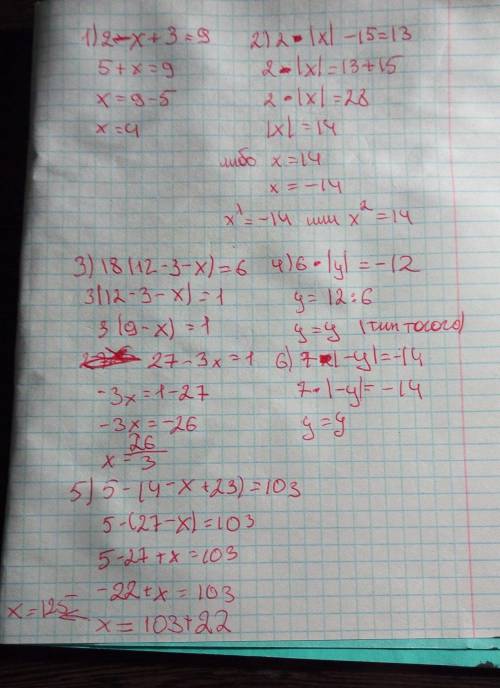 1) 2-x+3=9
5+x=9
x=9-5
x=4
2) 2•|x|-15=13
2•|x|=13+15
2•|x|=28
|x|=14
либо x=14
x=-14
x¹=-14 или x²=14
3) 18(12-3-x)=6
3(12-3-x)=1
3(9-x)=1
27-3x=1
-3x=1-27
-3x=-26
x=26/3
4) 6•|y|=-12
y=12:6
y=y (тип того)
5) 5-(4-x+23)=103
5-(27-x)=103
5-27+x=103
-22+x=103
x=103+22
x=125
6) 7•|-y|=-14
7•|-y|=-14
y=y